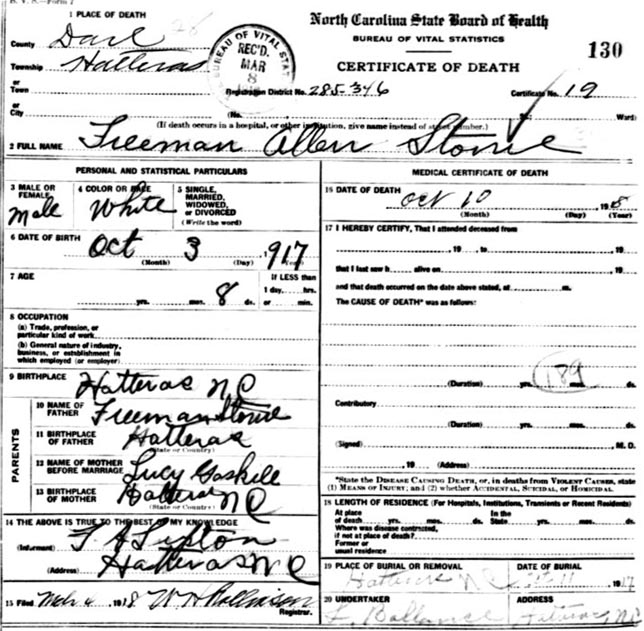 B. V. S.—Form 2
1 PLACE OF DEATH
28
North Carolina State Board of Health
BUREAU OF VITAL STATISTICS
130
CERTIFICATE OF DEATH
County Dare
BUREAU OF VITAL STAT
REC'D.
MAR
8
Township Hatteras
or
Town
Registration District No. 285-346 Certificate No. 19
or
City (No. Ward)
(If death occurs in a hospital, or other institution, give name instead of street number.)
2 FULL NAME Freeman Allen Stowe
PERSONAL AND STATISTICAL PARTICULARS
3 MALE OR FEMALE, Male
4 COLOR OR RACE White
5 SINGLE, MARRIED, WIDOWED, OR DIVORCED (Write the word)
6 DATE OF BIRTH Oct 3 917
(Month) (Day) (Year)
7 AGE
yrs. mos. 8 ds.
If LESS than
1 day, hrs.
or min.
8 OCCUPATION
(a) Trade, profession, or
particular kind of work
(b) General nature of industry,
business, or establishment in
which employed (or employer)
9 BIRTHPLACE Hatteras NC
PARENTS
10 NAME OF FATHER Freeman Stowe
11 BIRTHPLACE OF FATHER Hatteras
(State or Country)
12 NAME OF MOTHER BEFORE MARRIAGE Lucy Gaskill
13 BIRTHPLACE OF MOTHER Hatteras NC
(State or Country)
14 THE ABOVE IS TRUE TO THE BEST OF MY KNOWLEDGE
(Informant)
(Address) Hatteras NC
15 Filed Mch 6 1918 W H Rollinson
Registrar.
MEDICAL CERTIFICATE OF DEATH
16 DATE OF DEATH Oct 10 1918
(Month) (Day) (Year)
17 I HEREBY CERTIFY, That I attended deceased from
, 19 , to , 19
that I last saw h alive on , 19
and that death occurred on the date above stated, at m.
The CAUSE OF DEATH* was as follows:
189
(Duration) yrs. mos. ds.
Contributory
(Duration) yrs. mos. ds.
(Signed) M. D.
, 19 (Address)
*State the DISEASE CAUSING DEATH, or, in deaths from VIOLENT CAUSES, state
(1) MEANS OF INJURY; and (2) whether ACCIDENTAL, SUICIDAL, or HOMICIDAL.
18 LENGTH OF RESIDENCE (For Hospitals, Institutions, Transients or Recent Residents)
At place of death yrs. mos. ds. In the State yrs. mos. ds.
Where was disease contracted,
if not at place of death?
Former or
usual residence
19 PLACE OF BURIAL OR REMOVAL DATE OF BURIAL
Hatteras NC Oct 11 1917
20 UNDERTAKER ADDRESS
L. Ballance Hatteras NC